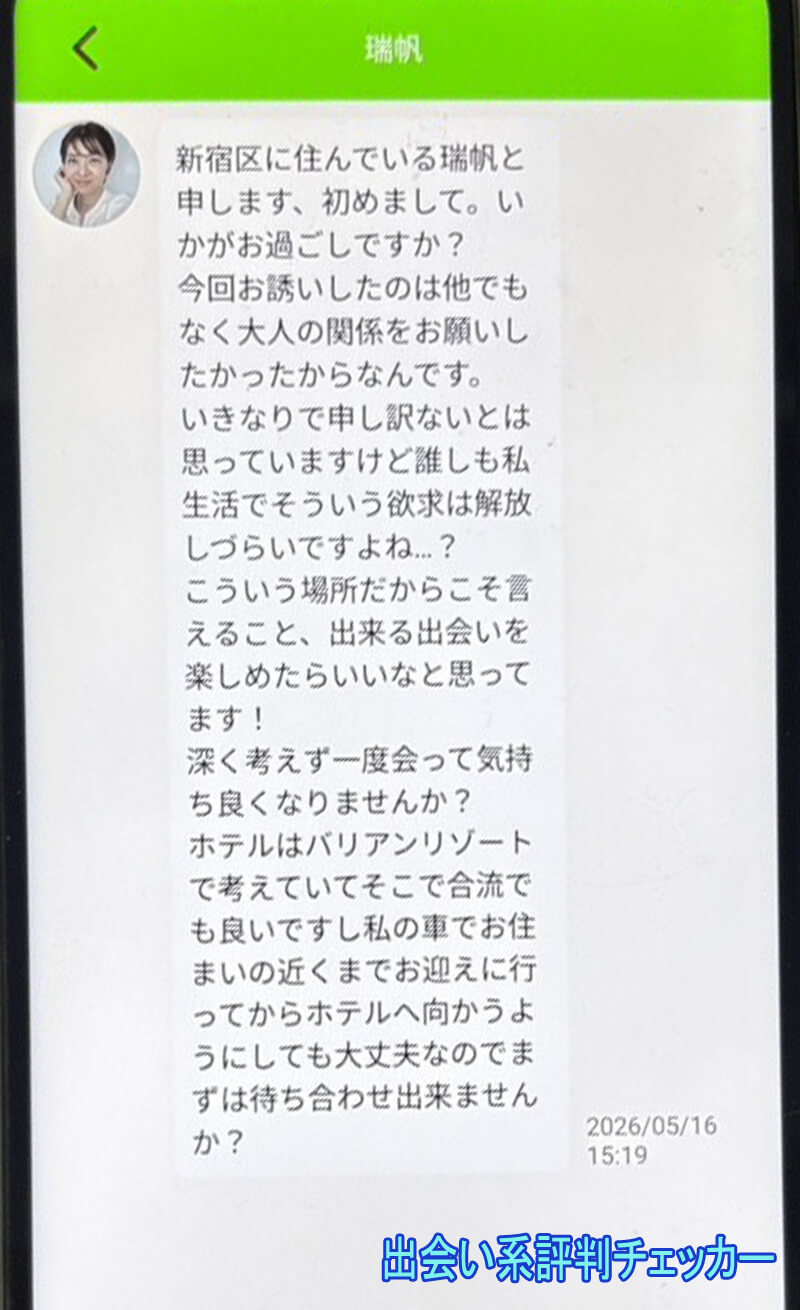 瑞帆
新宿区に住んでいる瑞帆と
申します、初めまして。い
かがお過ごしですか？
今回お誘いしたのは他でも
なく大人の関係をお願いし
たかったからなんです。
いきなりで申し訳ないとは
思っていますけど誰しも私
生活でそういう欲求は解放
しづらいですよね...？
こういう場所だからこそ言
えること、出来る出会いを
楽しめたらいいなと思って
ます！
深く考えず一度会って気持
ち良くなりませんか？
ホテルはバリアンリゾート
で考えていてそこで合流で
も良いですし私の車でお住
まいの近くまでお迎えに行
ってからホテルへ向かうよ
うにしても大丈夫なのでま
ずは待ち合わせ出来ません
か？
2026/05/16
15:19
出会い系評判チェッカー